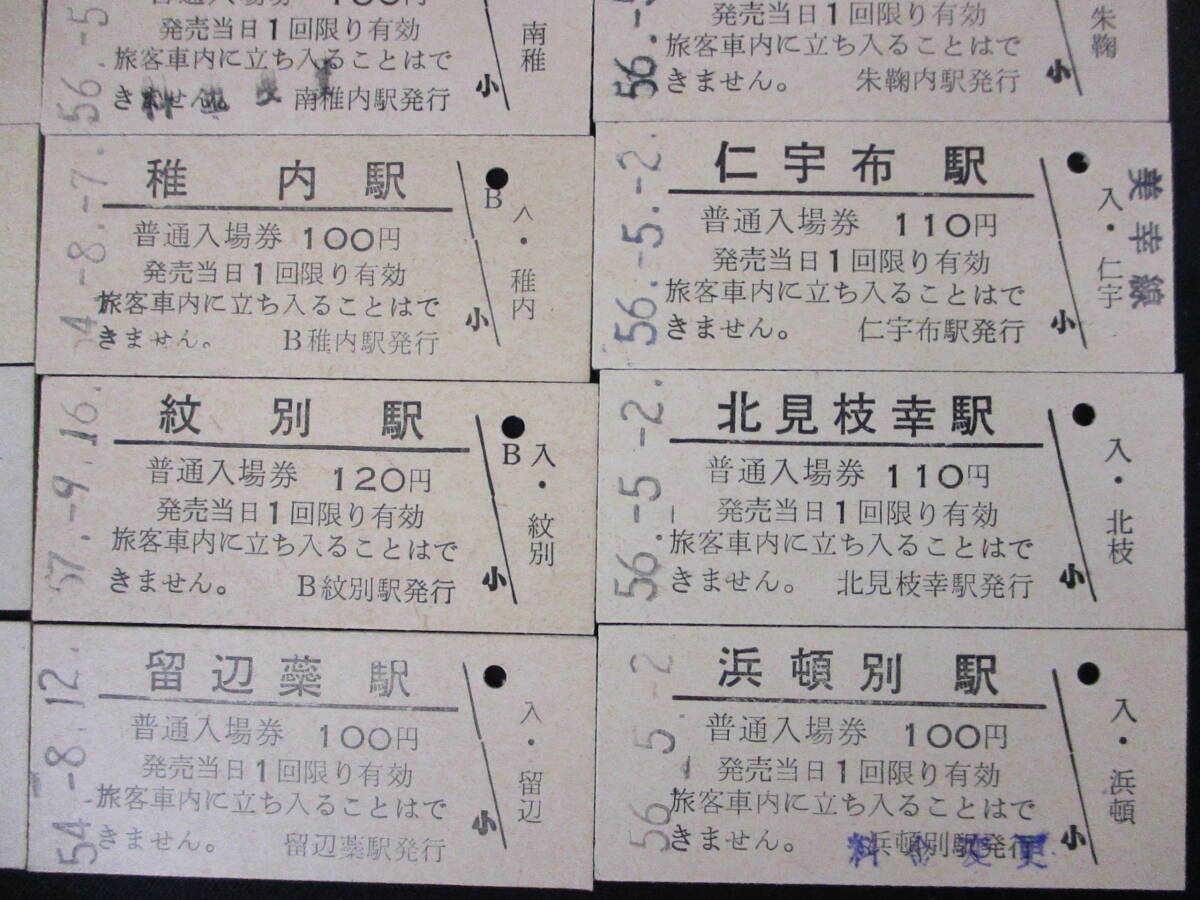 発売当日1回限り有効
旅客車内に立ち入ることはで
きません。 南稚内駅発行
南稚
小
56.-5
発売当日1回限り有効
旅客車内に立ち入ることはで
きません。 朱鞠内駅発行
朱鞠
小
56.-5
稚内駅
普通入場券 100円
発売当日1回限り有効
旅客車内に立ち入ることはで
きません。 B稚内駅発行
B
入・稚内
小
4.-8.-7.
仁宇布駅
普通入場券 110円
発売当日1回限り有効
旅客車内に立ち入ることはで
きません。 仁宇布駅発行
入・仁宇
小
美幸線
56.-5.-2.
紋別駅
普通入場券 120円
発売当日1回限り有効
旅客車内に立ち入ることはで
きません。 B紋別駅発行
B
入・紋別
小
57.-9.16.
北見枝幸駅
普通入場券 110円
発売当日1回限り有効
旅客車内に立ち入ることはで
きません。 北見枝幸駅発行
入・北枝
小
56.-5-2.
留辺蘂駅
普通入場券 100円
発売当日1回限り有効
旅客車内に立ち入ることはで
きません。 留辺蘂駅発行
入・留辺
小
54-8.12.
浜頓別駅
普通入場券 100円
発売当日1回限り有効
旅客車内に立ち入ることはで
きません。 浜頓別駅発行
料金変更
入・浜頓
小
56-5.-2